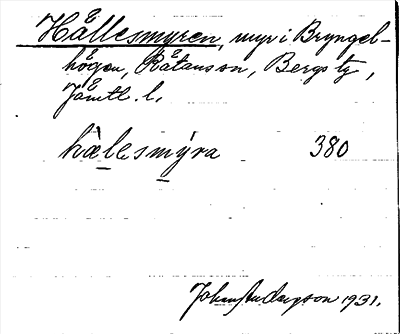 Hållesmyren, myr i Bryngel-
högen, Råtanssn, Bergs tg,
Jämtl. l.
hàlesmýra 380
Johan Anderzson 1931.